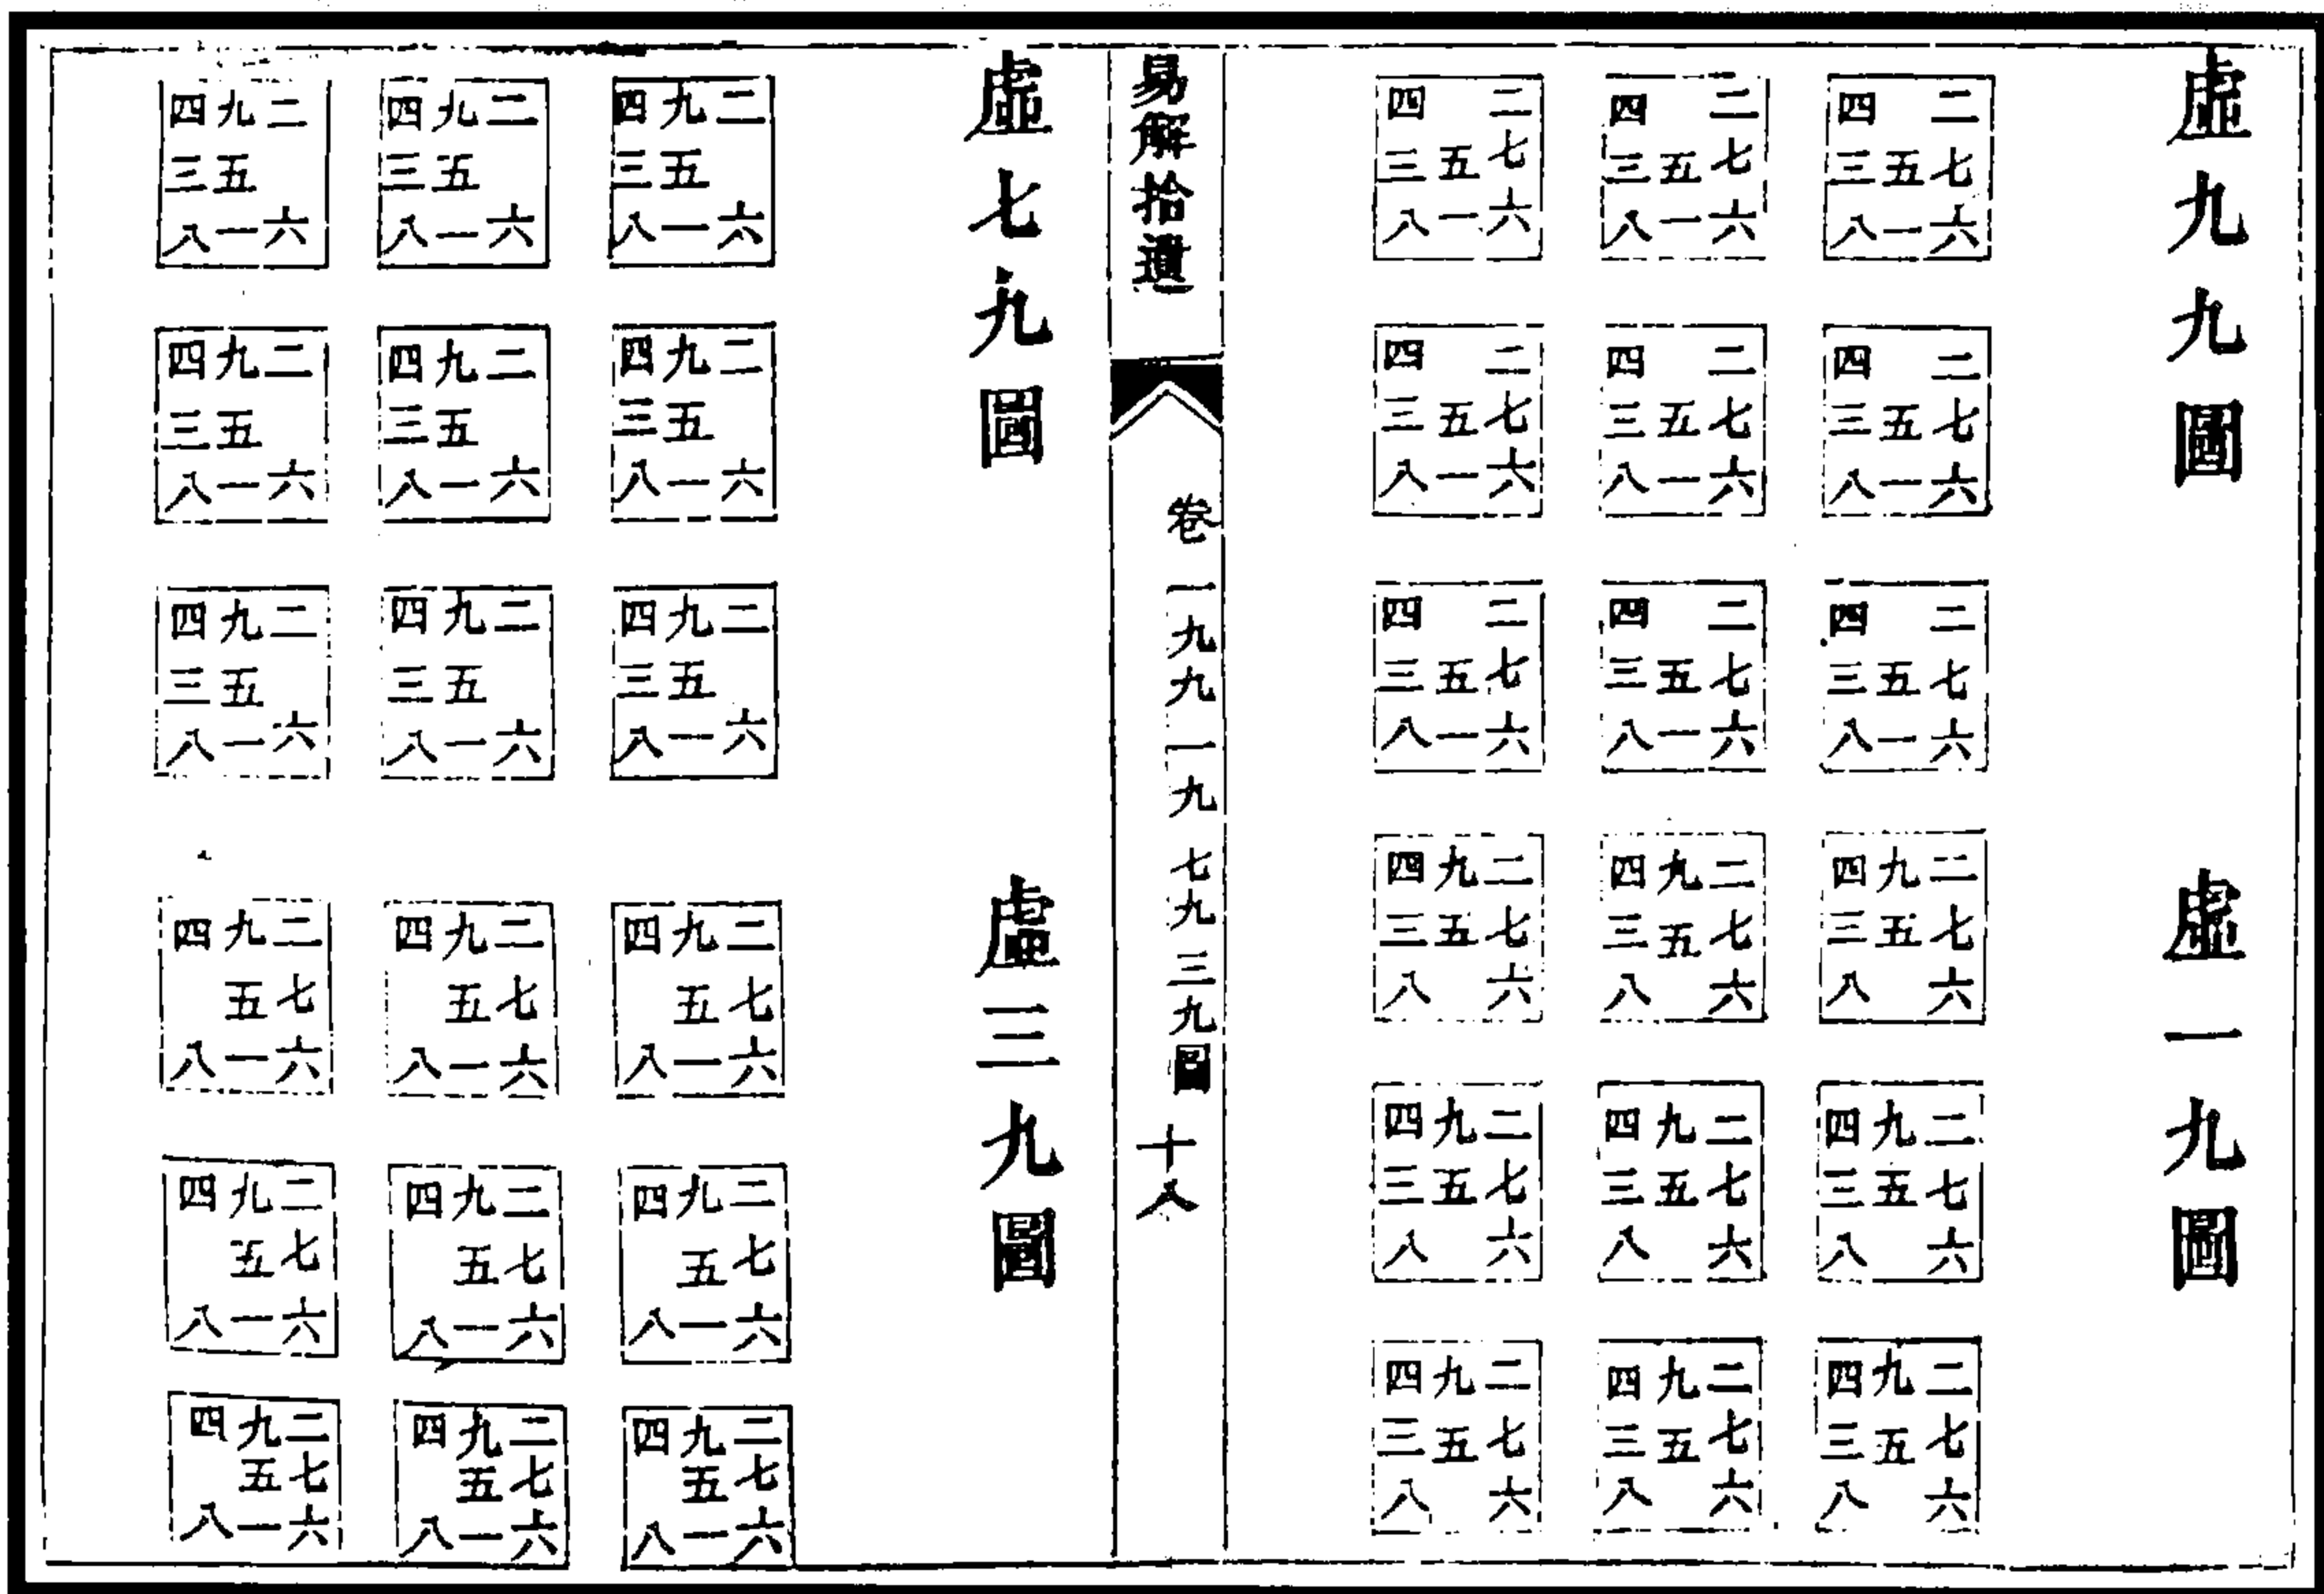 虛九九圖
四 二
三五七
八一六
四 二
三五七
八一六
四 二
三五七
八一六
四 二
三五七
八一六
四 二
三五七
八一六
四 二
三五七
八一六
四 二
三五七
八一六
四 二
三五七
八一六
四 二
三五七
八一六
虛一九圖
四九二
三五七
八 六
四九二
三五七
八 六
四九二
三五七
八 六
四九二
三五七
八 六
四九二
三五七
八 六
四九二
三五七
八 六
四九二
三五七
八 六
四九二
三五七
八 六
四九二
三五七
八 六
易解拾遺
卷一 九九 一九 七九 三九圖
十八
虛七九圖
四九二
三五
八一六
四九二
三五
八一六
四九二
三五
八一六
四九二
三五
八一六
四九二
三五
八一六
四九二
三五
八一六
四九二
三五
八一六
四九二
三五
八一六
四九二
三五
八一六
虛三九圖
四九二
五七
八一六
四九二
五七
八一六
四九二
五七
八一六
四九二
五七
八一六
四九二
五七
八一六
四九二
五七
八一六
四九二
五七
八一六
四九二
五七
八一六
四九二
五七
八一六